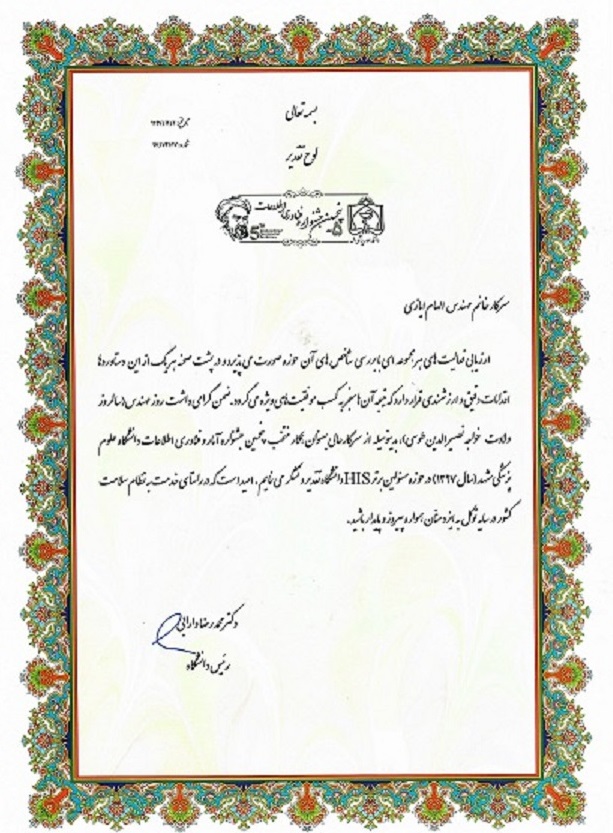 بسمه تعالی
تاریخ:
شماره:
لوح تقدیر
پنجمین جشنواره فناوری اطلاعات
5
سرکار خانم مهندس الهام ایازی
ارزیابی فعالیت های هر مجموعه ای با بررسی شاخص های آن حوزه صورت می پذیرد و در پشت صحنه هر یک از این دستاوردها
اقدامات دقیق و ارزشمندی قرار دارد که نتیجه آن ها منجر به کسب موفقیت های ویژه می گردد. ضمن گرامی داشت روز مهندس (سالروز
ولادت خواجه نصیرالدین طوسی)، بدینوسیله از سرکارعالی بعنوان همکار منتخب پنجمین جشنواره آمار و فناوری اطلاعات دانشگاه علوم
پزشکی مشهد (سال ۱۳۹۷) در حوزه مسئولین برتر HIS دانشگاه تقدیر و تشکر می نمایم. امید است که در راستای خدمت به نظام سلامت
کشور در سایه توکل به ایزد منان همواره پیروز و پایدار باشید.
دکتر محمدرضا دارابی
رئیس دانشگاه